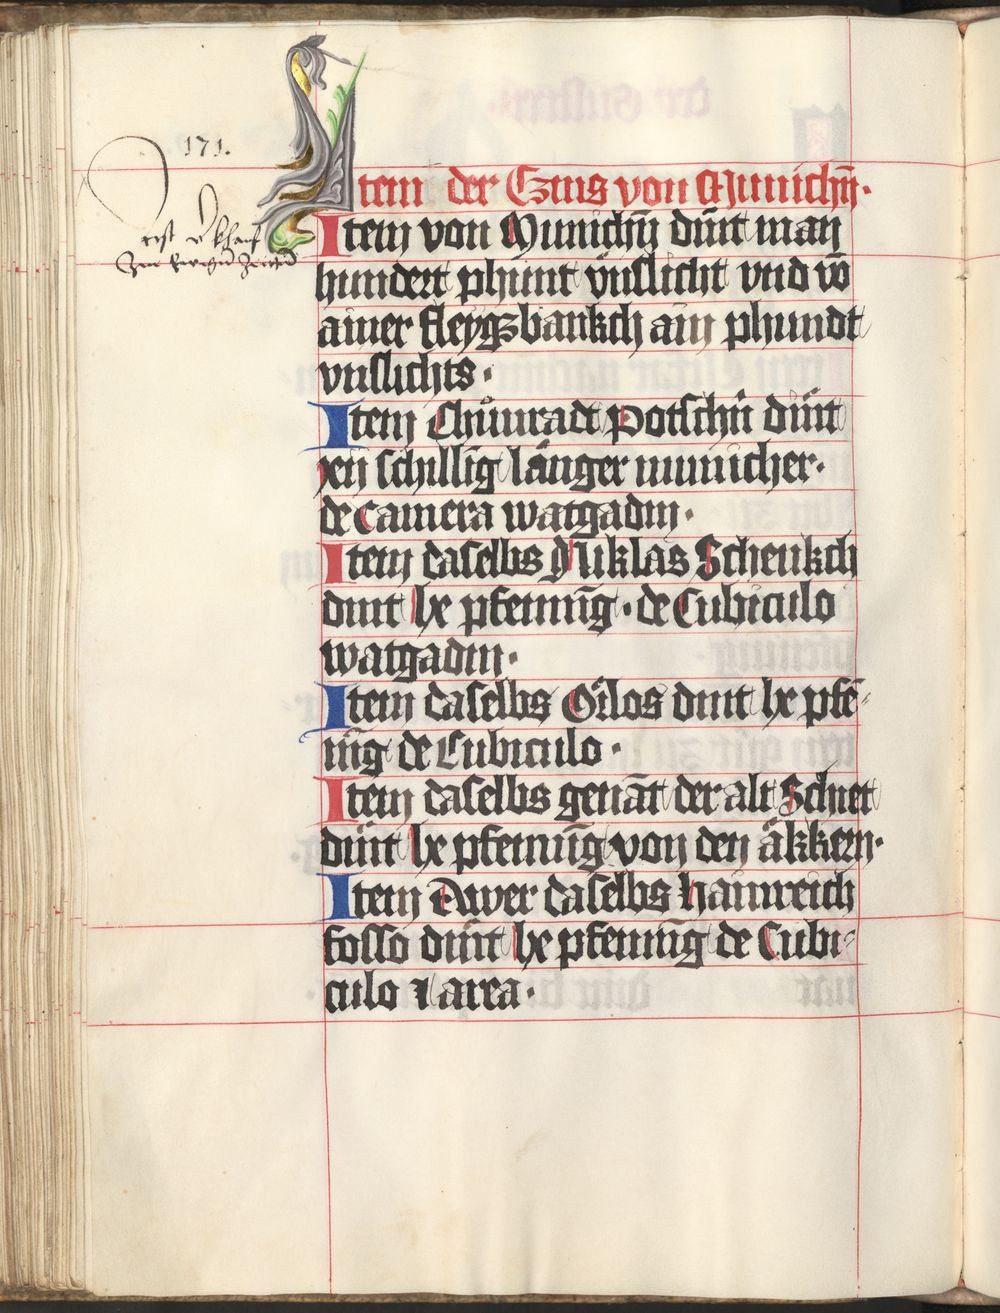 171.
Item der Czins von Munichn̄.
Item von Munichn̄ dint man
hundert phunt vnslicht vnd vō
ainer fleyschbankch ain phundt
vnslichts.
Item Chůnradt Potschn̄ dint
xen schillīg länger municher.
de Camera watgadm.
Item daselbs Niklas Schenkch
dint lx pfennīg. de Cubiculo
watgadm.
Item daselbs dint lx pfē-
nīg de Cubiculo.
Item daselbs genāt der alt Schret
dint lx pfennīg von den äkkern.
Item Awer daselbs Hainreich
fosso dint lx pfennīg de Cubi-
culo ⁊ area.